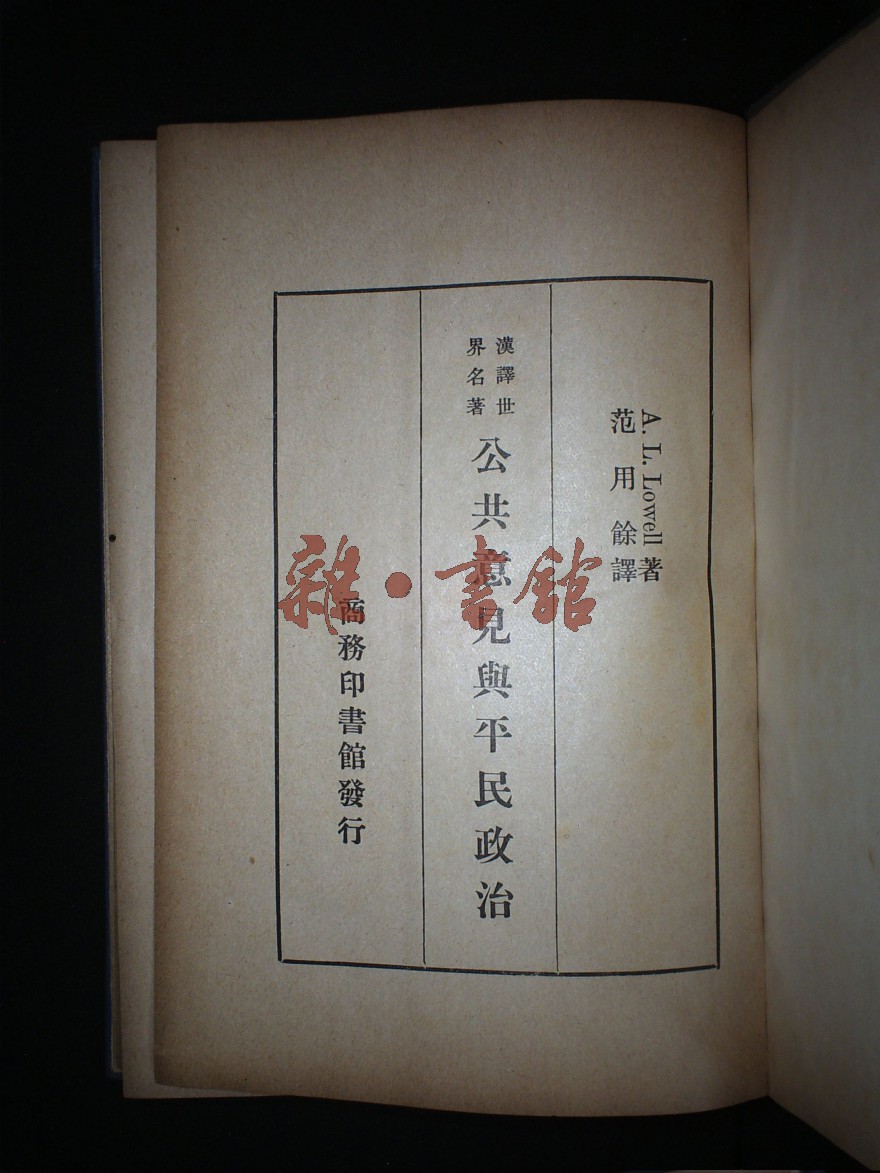 A. L. Lowell 著
范用餘譯
漢譯世
界名著
公共意見與平民政治
商務印書館發行
雜·書館